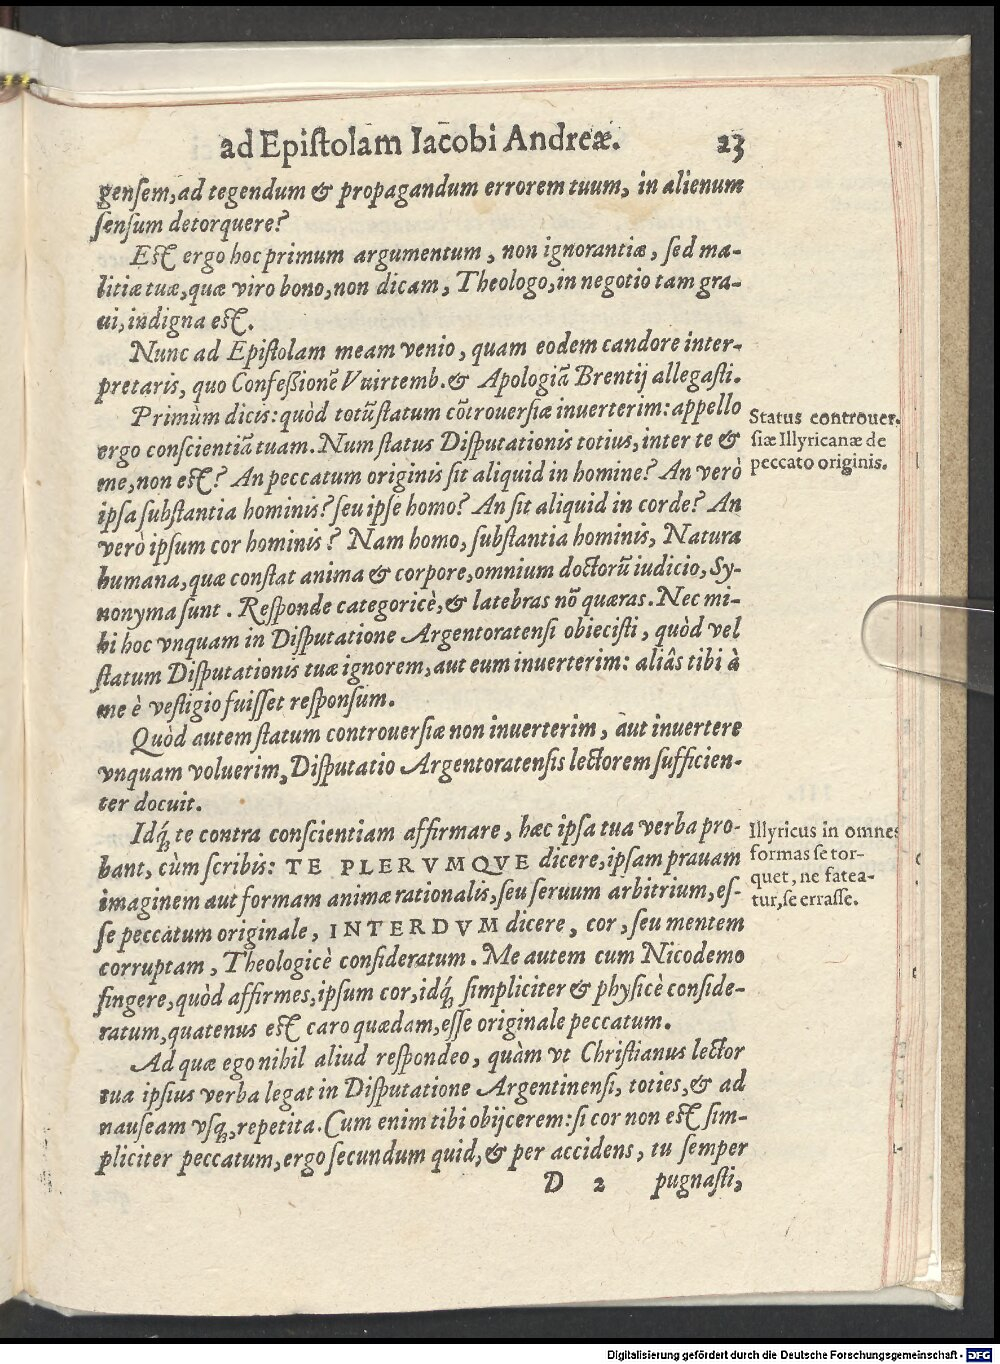 ad Epiſtolam Iacobi Andreæ. 23
genſem, ad tegendum & propagandum errorem tuum, in alienum
ſenſum detorquere?
Eſt ergo hoc primum argumentum, non ignorantiæ, ſed ma-
litiæ tuæ, quæ viro bono, non dicam, Theologo, in negotio tam gra-
ui, indigna eſt.
Nunc ad Epiſtolam meam venio, quam eodem candore inter-
pretaris, quo Confeſsionẽ Vuirtemb. & Apologiã Brentij allegaſti.
Primùm dicis: quòd totũ ſtatum cõtrouerſiæ inuerterim: appello
ergo conſcientiã tuam. Num ſtatus Diſputationis totius, inter te &
me, non eſt? An peccatum originis ſit aliquid in homine? An verò
ipſa ſubſtantia hominis? ſeu ipſe homo? An ſit aliquid in corde? An
verò ipſum cor hominis? Nam homo, ſubſtantia hominis, Natura
humana, quæ conſtat anima & corpore, omnium doctorũ iudicio, Sy-
nonyma ſunt. Reſponde categoricè, & latebras nõ quæras. Nec mi-
hi hoc vnquam in Diſputatione Argentoratenſi obieciſti, quòd vel
ſtatum Diſputationis tuæ ignorem, aut eum inuerterim: aliâs tibi à
me è veſtigio fuiſſet reſponſum.
Quòd autem ſtatum controuerſiæ non inuerterim, aut inuertere
vnquam voluerim, Diſputatio Argentoratenſis lectorem ſufficien-
ter docuit.
Idq́; te contra conſcientiam affirmare, hæc ipſa tua verba pro-
bant, cùm ſcribis: TE PLERVMQVE dicere, ipſam prauam
imaginem aut formam animæ rationalis, ſeu ſeruum arbitrium, eſ-
ſe peccatum originale, INTERDVM dicere, cor, ſeu mentem
corruptam, Theologicè conſideratum. Me autem cum Nicodemo
fingere, quòd affirmes, ipſum cor, idq́; ſimpliciter & phyſicè conſide-
ratum, quatenus eſt caro quædam, eſſe originale peccatum.
Ad quæ ego nihil aliud reſpondeo, quàm vt Chriſtianus lector
tua ipſius verba legat in Diſputatione Argentinenſi, toties, & ad
nauſeam vſq;, repetita. Cum enim tibi obijcerem: ſi cor non eſt ſim-
pliciter peccatum, ergo ſecundum quid, & per accidens, tu ſemper
D 2 pugnaſti,
Status controuer-
ſiæ Illyricanæ de
peccato originis.
Illyricus in omnes
formas ſe tor-
quet, ne fatea-
tur, ſe erraſſe.
Digitalisierung gefördert durch die Deutsche Forschungsgemeinschaft - DFG